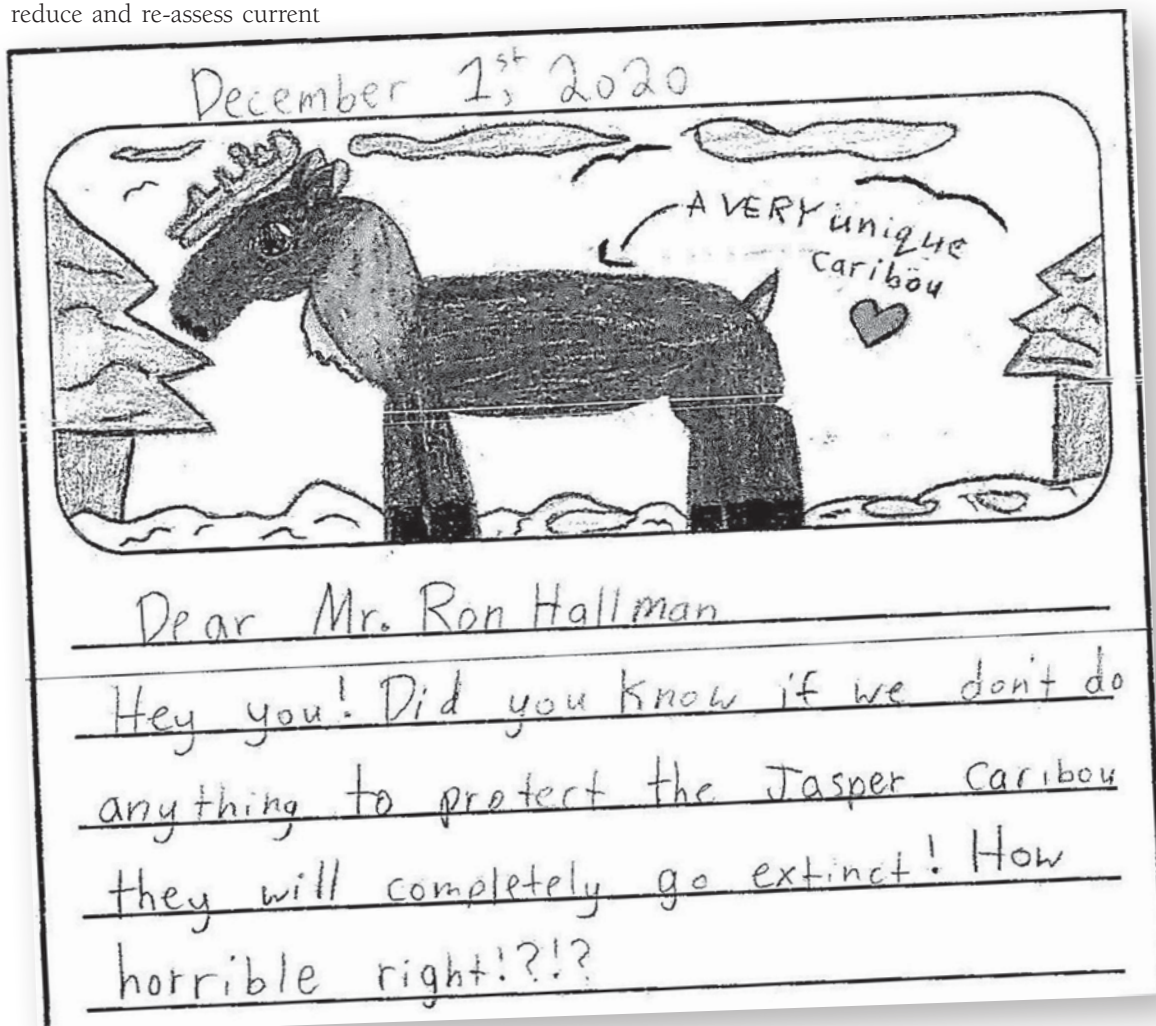 reduce and re-assess current
December 1st, 2020
A VERY unique
caribou
Dear Mr. Ron Hallman
Hey you! Did you know if we don't do
anything to protect the Jasper caribou
they will completely go extinct! How
horrible right!?!?